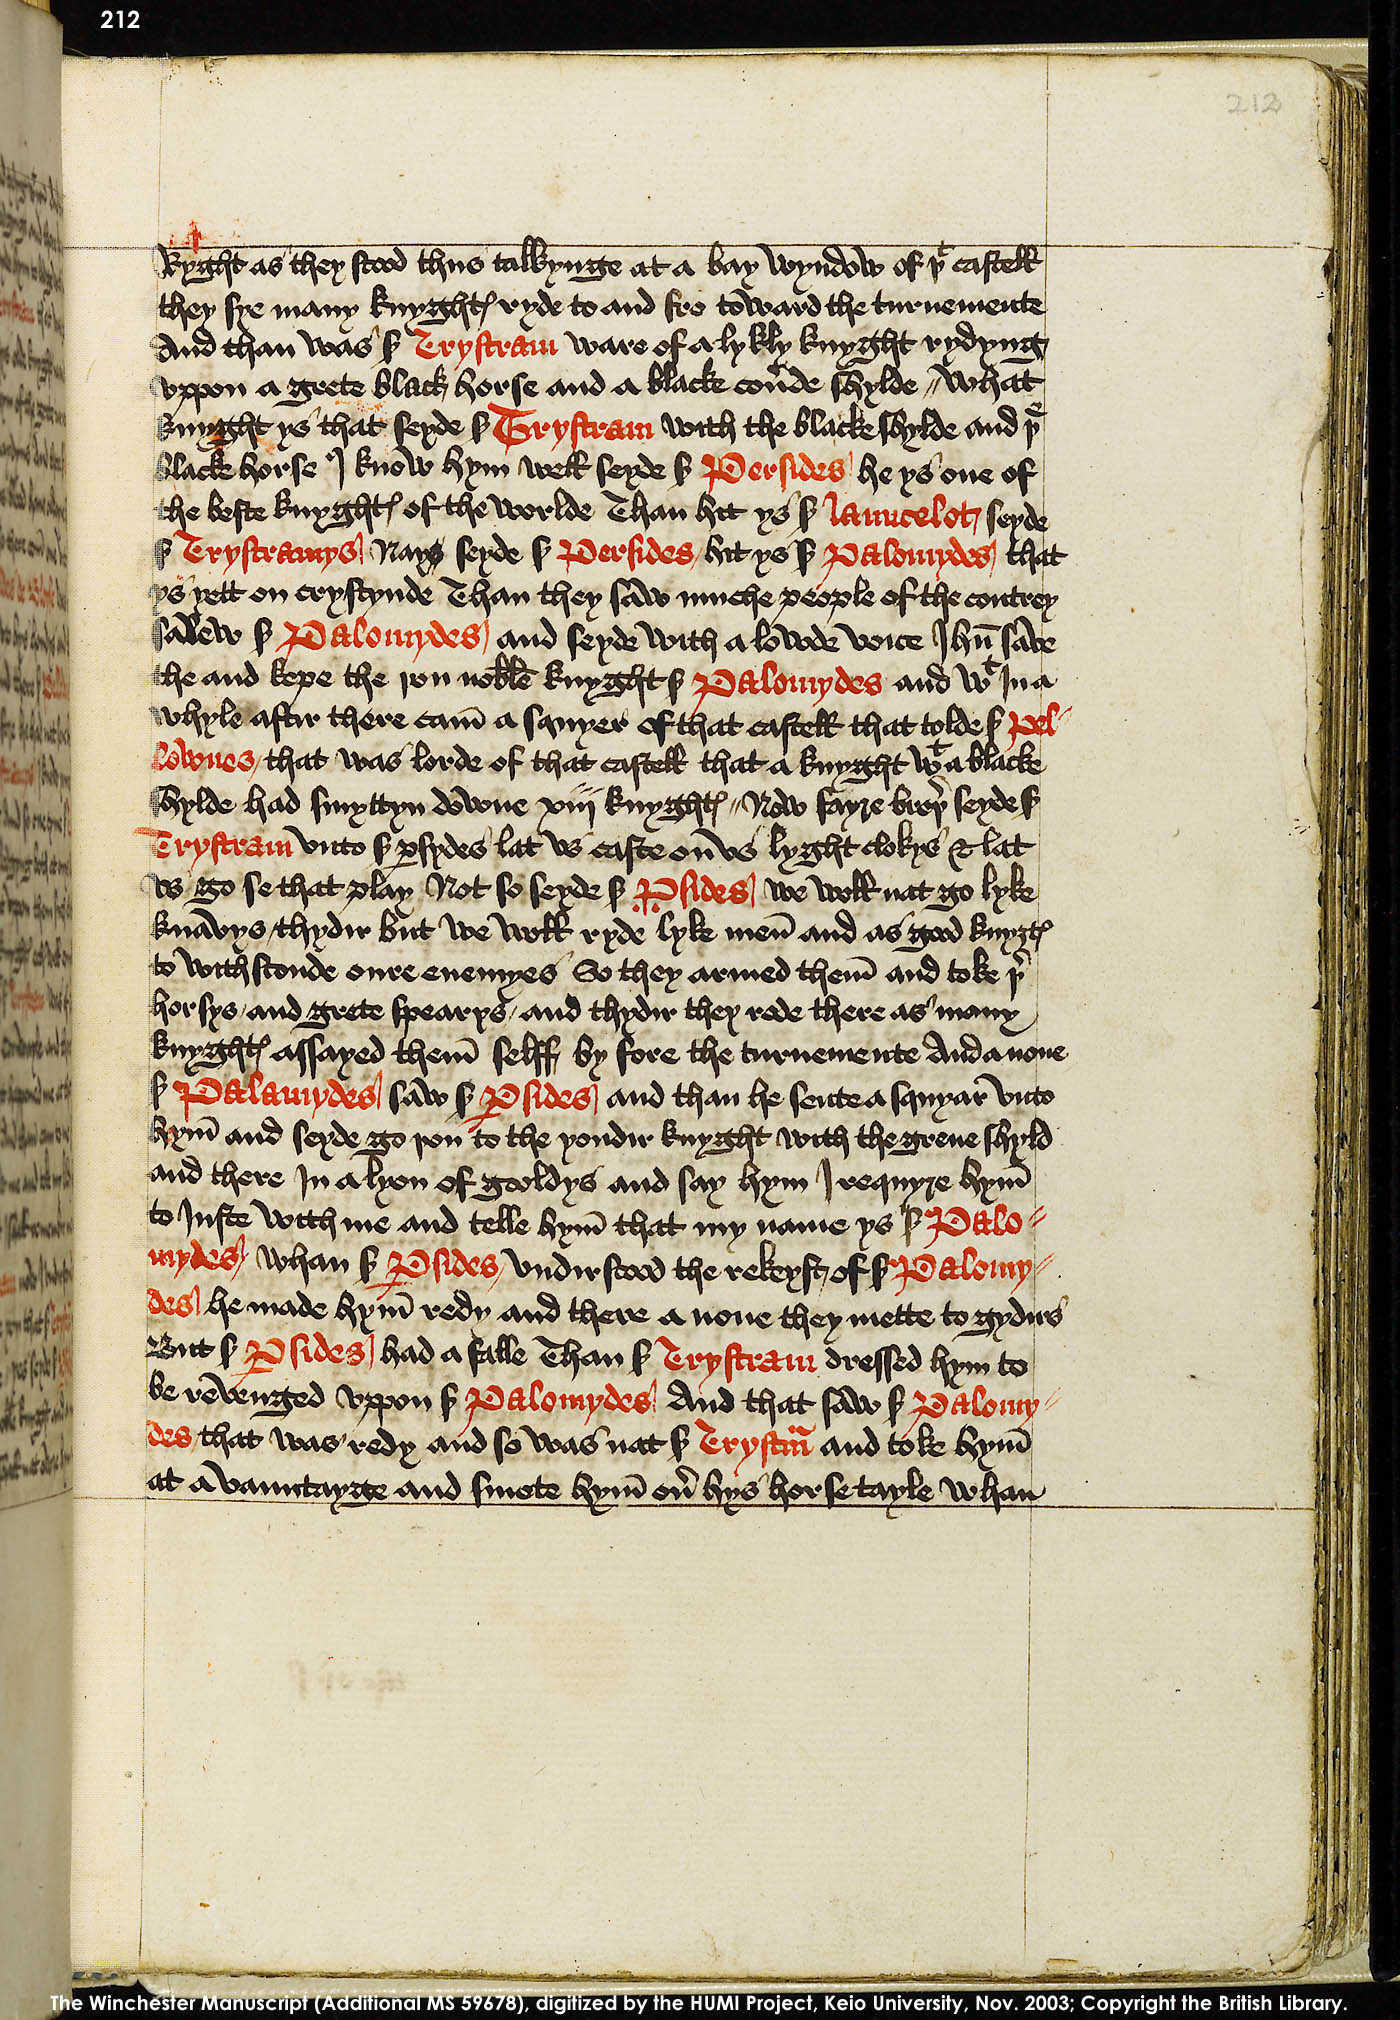 212
212
Ryght as they stood thus talkynge at a bay wyndow of þͭ castell
they sye many knyghtꝭ ryde to and fro toward the turnemente
And than was ẜ Trystram ware of a lykly knyght rydyng
vppon a grete black horse and a blacke cou̾de shylde // What
knyght ys that seyde ẜ Trystram with the blacke shylde and þͤ
blacke horse I know hym well seyde ẜ Persides he ys one of
the beste knyghtꝭ of the worlde Than hit ys ẜ launcelot seyde
ẜ Trystramys Nay seyde ẜ Persides hit ys ẜ Palomydes that
ys yett on crystynde Than they saw muche people of the contrey
salew ẜ Palomydes and seyde with a lowde voice Jhu̅ save
the and kepe the you noble knyght ẜ Palomydes and wͭ In a
whyle aftir there cam̅ a squyer of that castell that tolde ẜ Pel//
lownes that was lorde of that castell that a knyght wͭ a blacke
shylde had smyttyn downe xiij knyghtꝭ // Now fayre broþ̾ seyde ẜ
Trystram vnto ẜ ꝑsydes lat vs caste on̅ vs lyght clokys & lat
vs go se that play Not so seyde ẜ Ꝑsides we woll nat go lyke
knavys thydir but we woll ryde lyke men̅ and as good knyȝtꝭ
to withstonde oure enemyes So they armed them̅ and toke þ̾
horsys and grete spearys and thydir they rode there as many
knyghtꝭ assayed them̅ selff by fore the turnemente And a none
ẜ Palamydes saw ẜ Ꝑsides and than he sente a squyar vnto
hym̅ and seyde go you to the yondir knyght with the grene shyld
and there In a lyon of gooldys and say hym I requyre hym̅
to Juste with me and telle hym̅ that my name ys ẜ Palo//
mydes whan ẜ Ꝑsides vndirstood the rekeyst of ẜ Palomy//
des he made hym̅ redy and there a none they mette to gydirs
But ẜ Ꝑsides had a falle Than ẜ Trystram dressed hym to
be revenged vppon ẜ Palomydes And that saw ẜ Palomy//
des that was redy and so was nat ẜ Trystm̅ and toke hym̅
at a vauntayge and smote hym̅ ou̾ hys horse tayle whan
The Winchester Manuscript (Additional MS 59678), digitized by the HUMI Project, Keio University, Nov. 2003; Copyright the British Library.